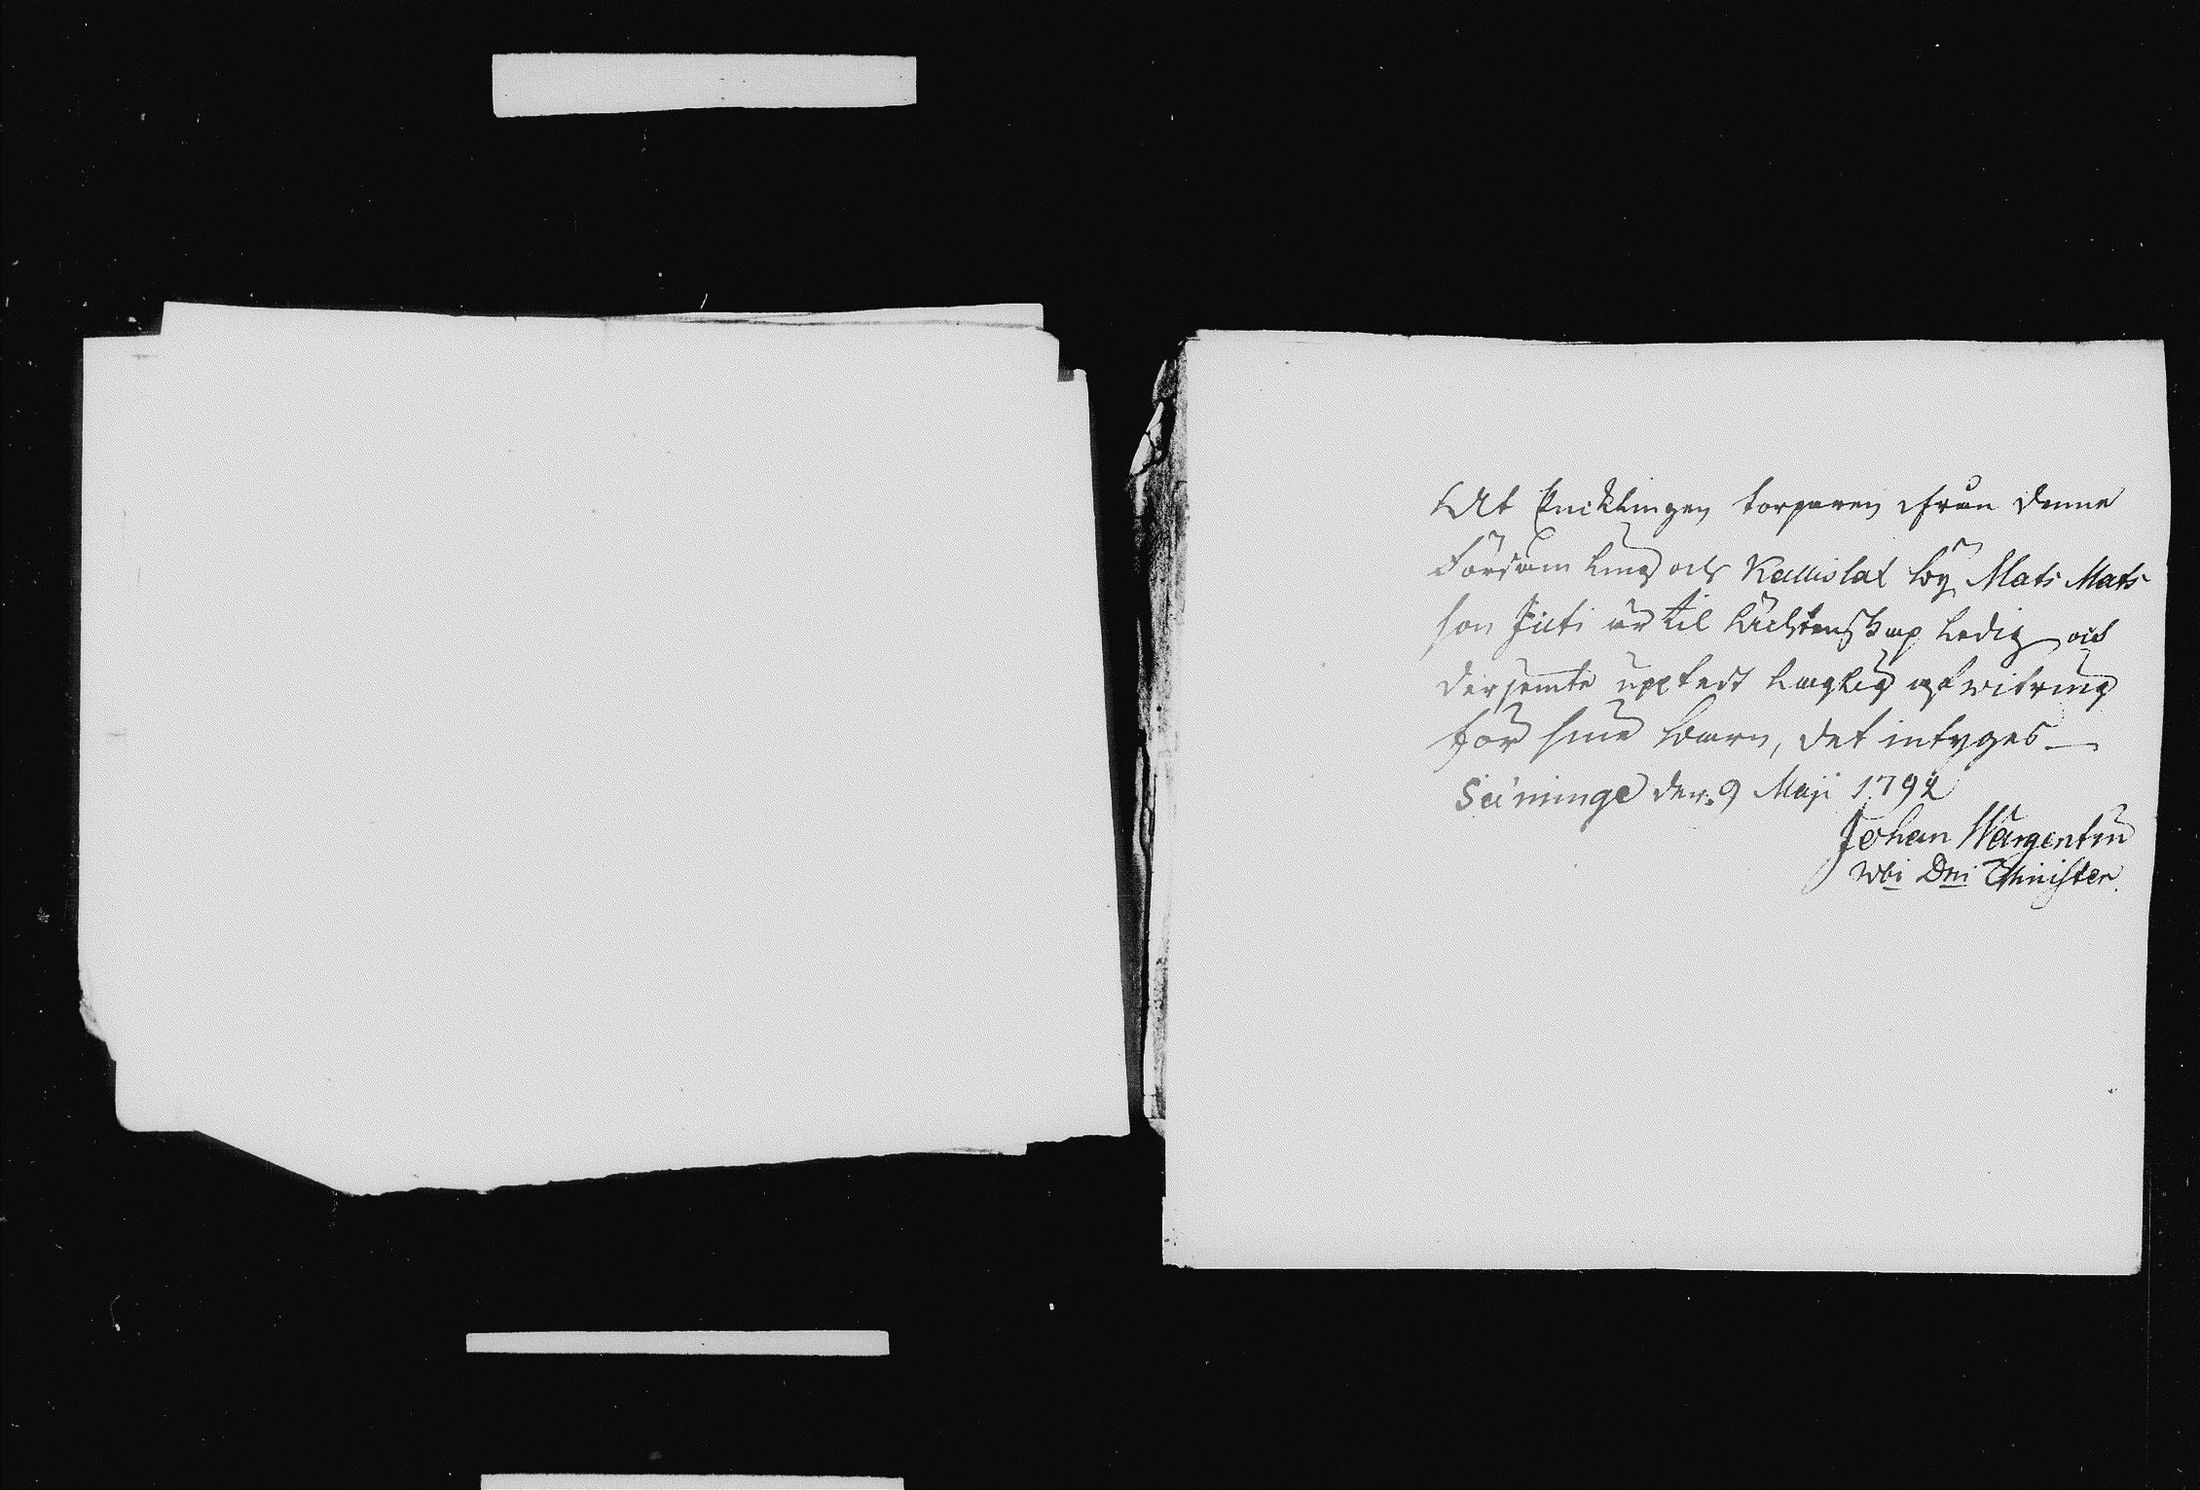 At Enklingen torparen ifrån denna
Församling och Kallislax by Mats Mats
son Juti är til Ächtenskap ledig och
derjemte uptedt laglig afwitring
för sine barn, det intyges
Säminge den 9 Maji 1792
Johan Wargentin
Vbi Dni Minister.